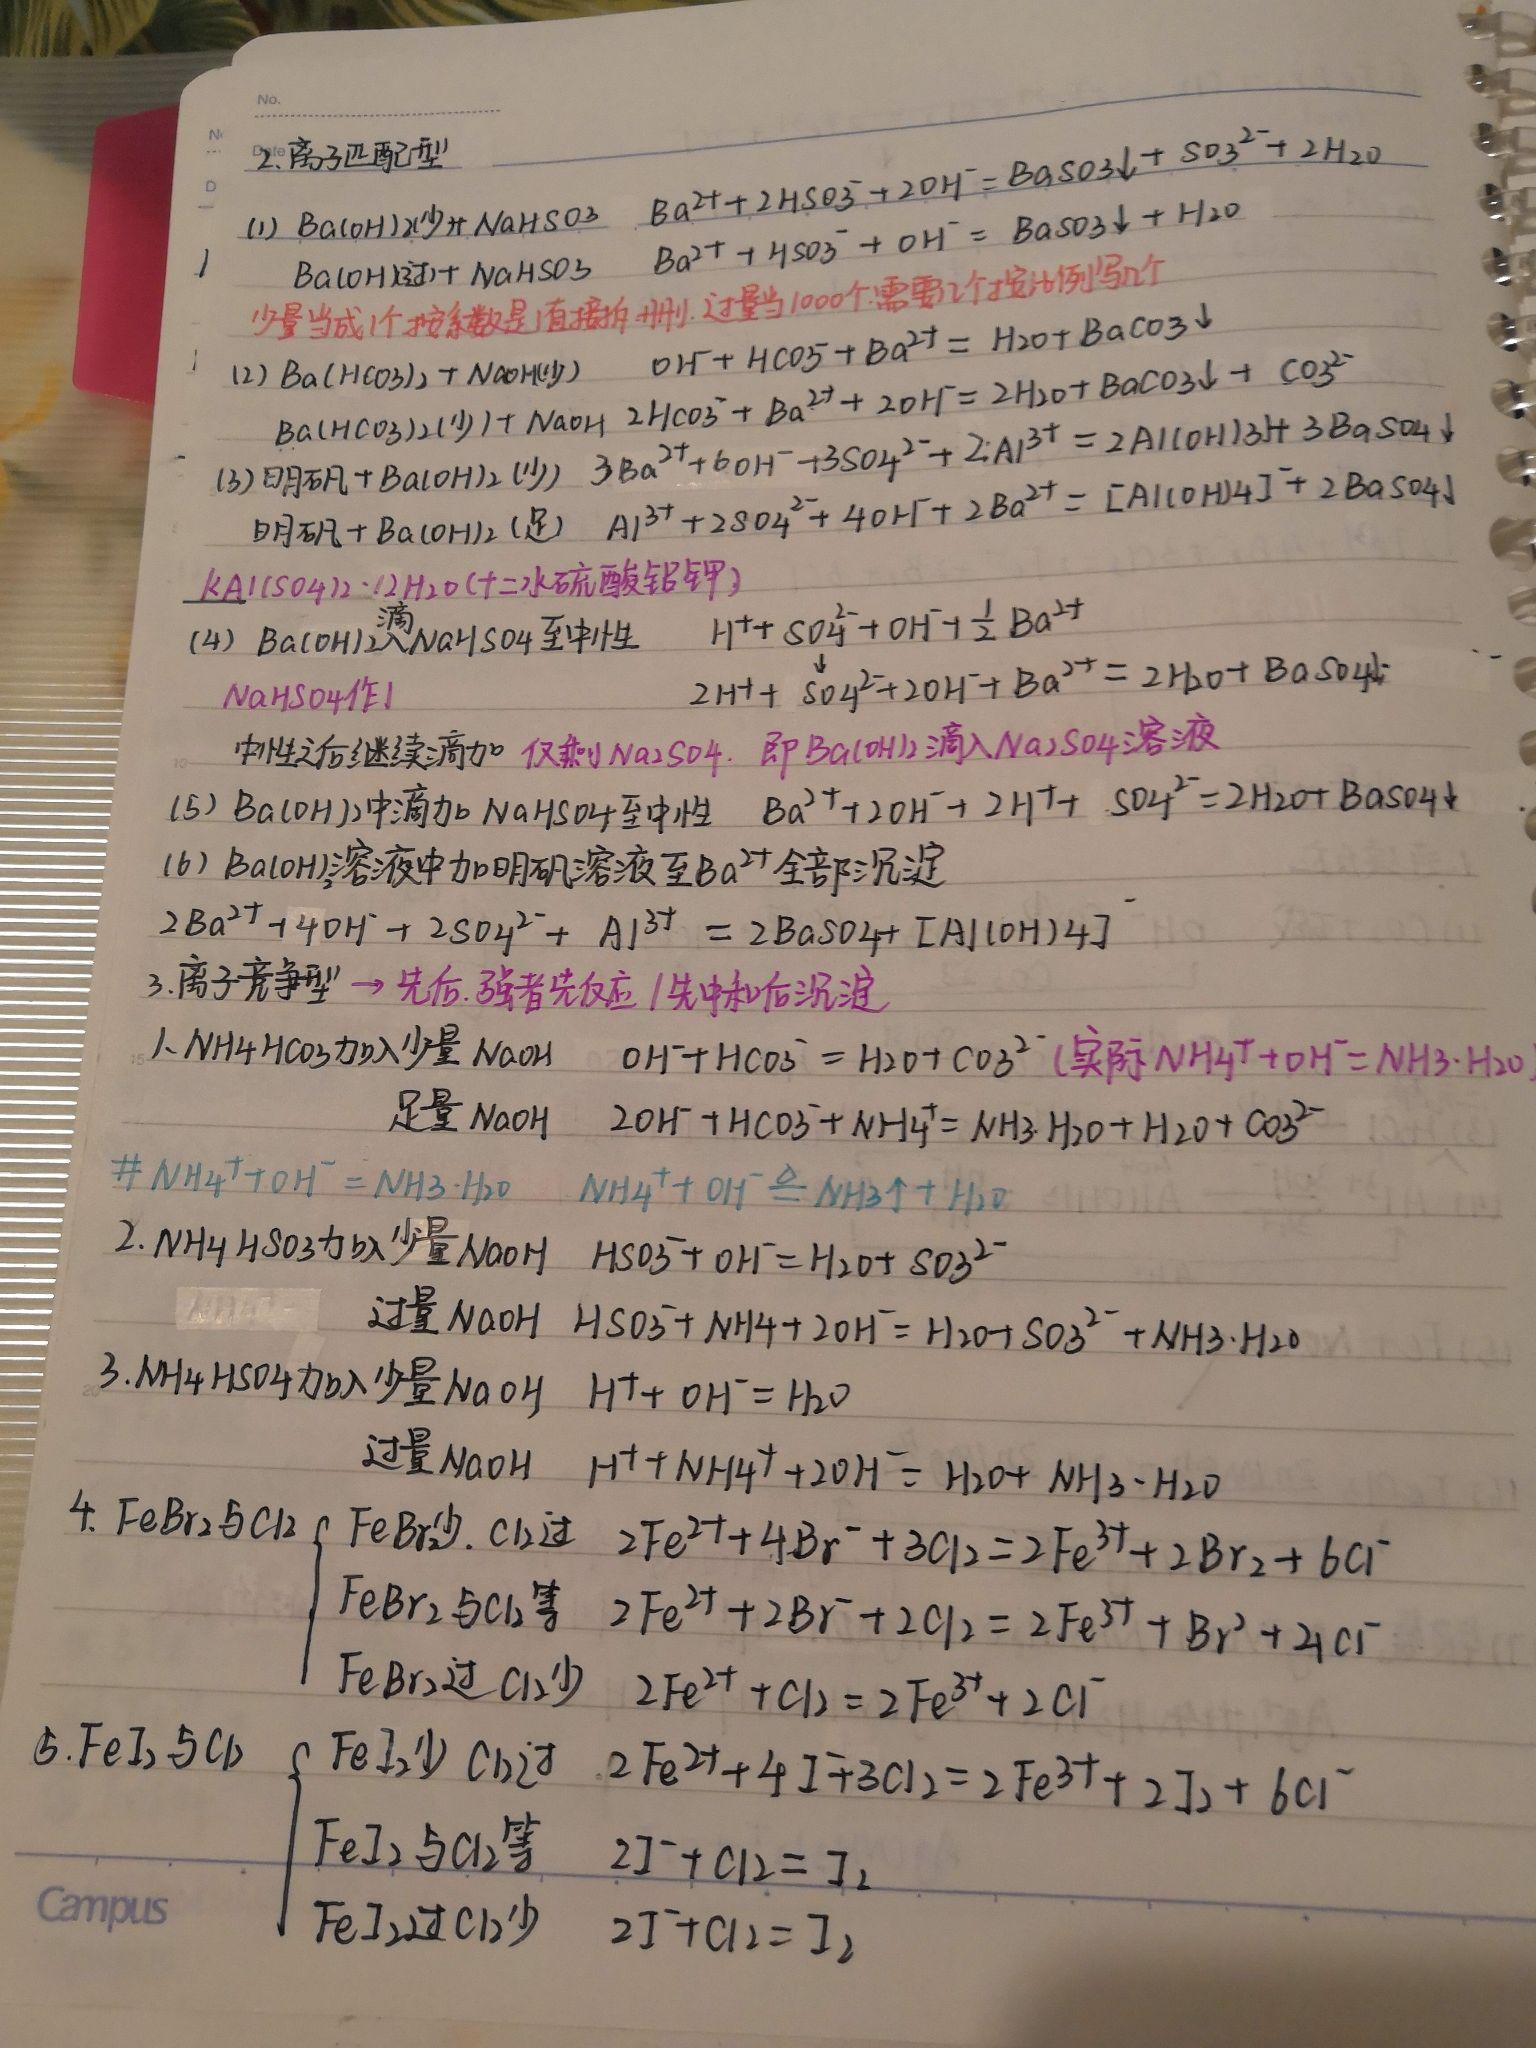 No.
Date
2.离子匹配型
(1) Ba(OH)2少+ NaHSO3 Ba²⁺+2HSO3⁻+2OH⁻=BaSO3↓+SO3²⁻+2H2O
Ba(OH)2过+ NaHSO3 Ba²⁺+HSO3⁻+OH⁻=BaSO3↓+H2O
少量当成1个按系数是1直接拆 删.过量当1000个.需要几个按比例写几个
(2) Ba(HCO3)2+NaOH(少) OH⁻+HCO3⁻+Ba²⁺=H2O+BaCO3↓
Ba(HCO3)2(少)+NaOH 2HCO3⁻+Ba²⁺+2OH⁻=2H2O+BaCO3↓+CO3²⁻
(3)明矾+Ba(OH)2(少) 3Ba²⁺+6OH⁻+3SO4²⁻+2Al³⁺=2Al(OH)3↓+3BaSO4↓
明矾+Ba(OH)2(足) Al³⁺+2SO4²⁻+4OH⁻+2Ba²⁺=[Al(OH)4]⁻+2BaSO4↓
KAl(SO4)2·12H2O(十二水硫酸铝钾)
(4) Ba(OH)2滴入NaHSO4至中性 H⁺+SO4²⁻+OH⁻+½Ba²⁺
↓
NaHSO4作1 2H⁺+SO4²⁻+2OH⁻+Ba²⁺=2H2O+BaSO4↓
中性之后继续滴加 仅剩Na2SO4. 即Ba(OH)2滴入Na2SO4溶液
(5) Ba(OH)2中滴加NaHSO4至中性 Ba²⁺+2OH⁻+2H⁺+SO4²⁻=2H2O+BaSO4↓
(6) Ba(OH)2溶液中加明矾溶液至Ba²⁺全部沉淀
2Ba²⁺+4OH⁻+2SO4²⁻+Al³⁺=2BaSO4+[Al(OH)4]⁻
3.离子竞争型→先后.强者先反应/先中和后沉淀
1、NH4HCO3加入少量NaOH OH⁻+HCO3⁻=H2O+CO3²⁻(实际NH4⁺+OH⁻=NH3·H2O)
足量NaOH 2OH⁻+HCO3⁻+NH4⁺=NH3·H2O+H2O+CO3²⁻
#NH4⁺+OH⁻=NH3·H2O NH4⁺+OH⁻≜NH3↑+H2O
2.NH4HSO3加入少量NaOH HSO3⁻+OH⁻=H2O+SO3²⁻
过量NaOH HSO3⁻+NH4+2OH⁻=H2O+SO3²⁻+NH3·H2O
3.NH4HSO4加入少量NaOH H⁺+OH⁻=H2O
过量NaOH H⁺+NH4⁺+2OH⁻=H2O+NH3·H2O
4.FeBr2与Cl2 FeBr2少.Cl2过 2Fe²⁺+4Br⁻+3Cl2=2Fe³⁺+2Br2+6Cl⁻
FeBr2与Cl2等 2Fe²⁺+2Br⁻+2Cl2=2Fe³⁺+Br²+4Cl⁻
FeBr2过Cl2少 2Fe²⁺+Cl2=2Fe³⁺+2Cl⁻
5.FeI2与Cl2 FeI2少 Cl2过 2Fe²⁺+4I⁻+3Cl2=2Fe³⁺+2I2+6Cl⁻
FeI2与Cl2等 2I⁻+Cl2=I2
FeI2过Cl2少 2I⁻+Cl2=I2
Campus